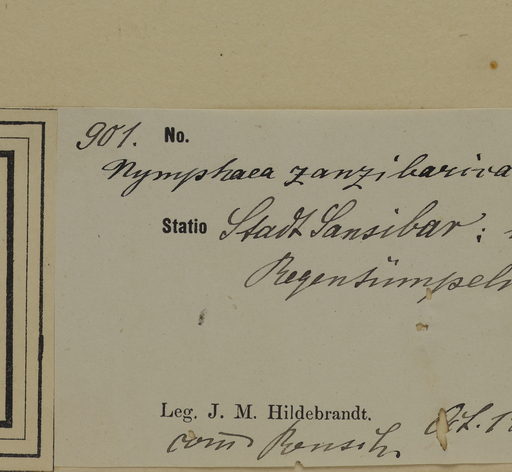 901. No.
Nymphaea zanzibarica
Statio Stadt Sansibar:
Regensümpeln
Leg. J. M. Hildebrandt.
Oct. 1
com